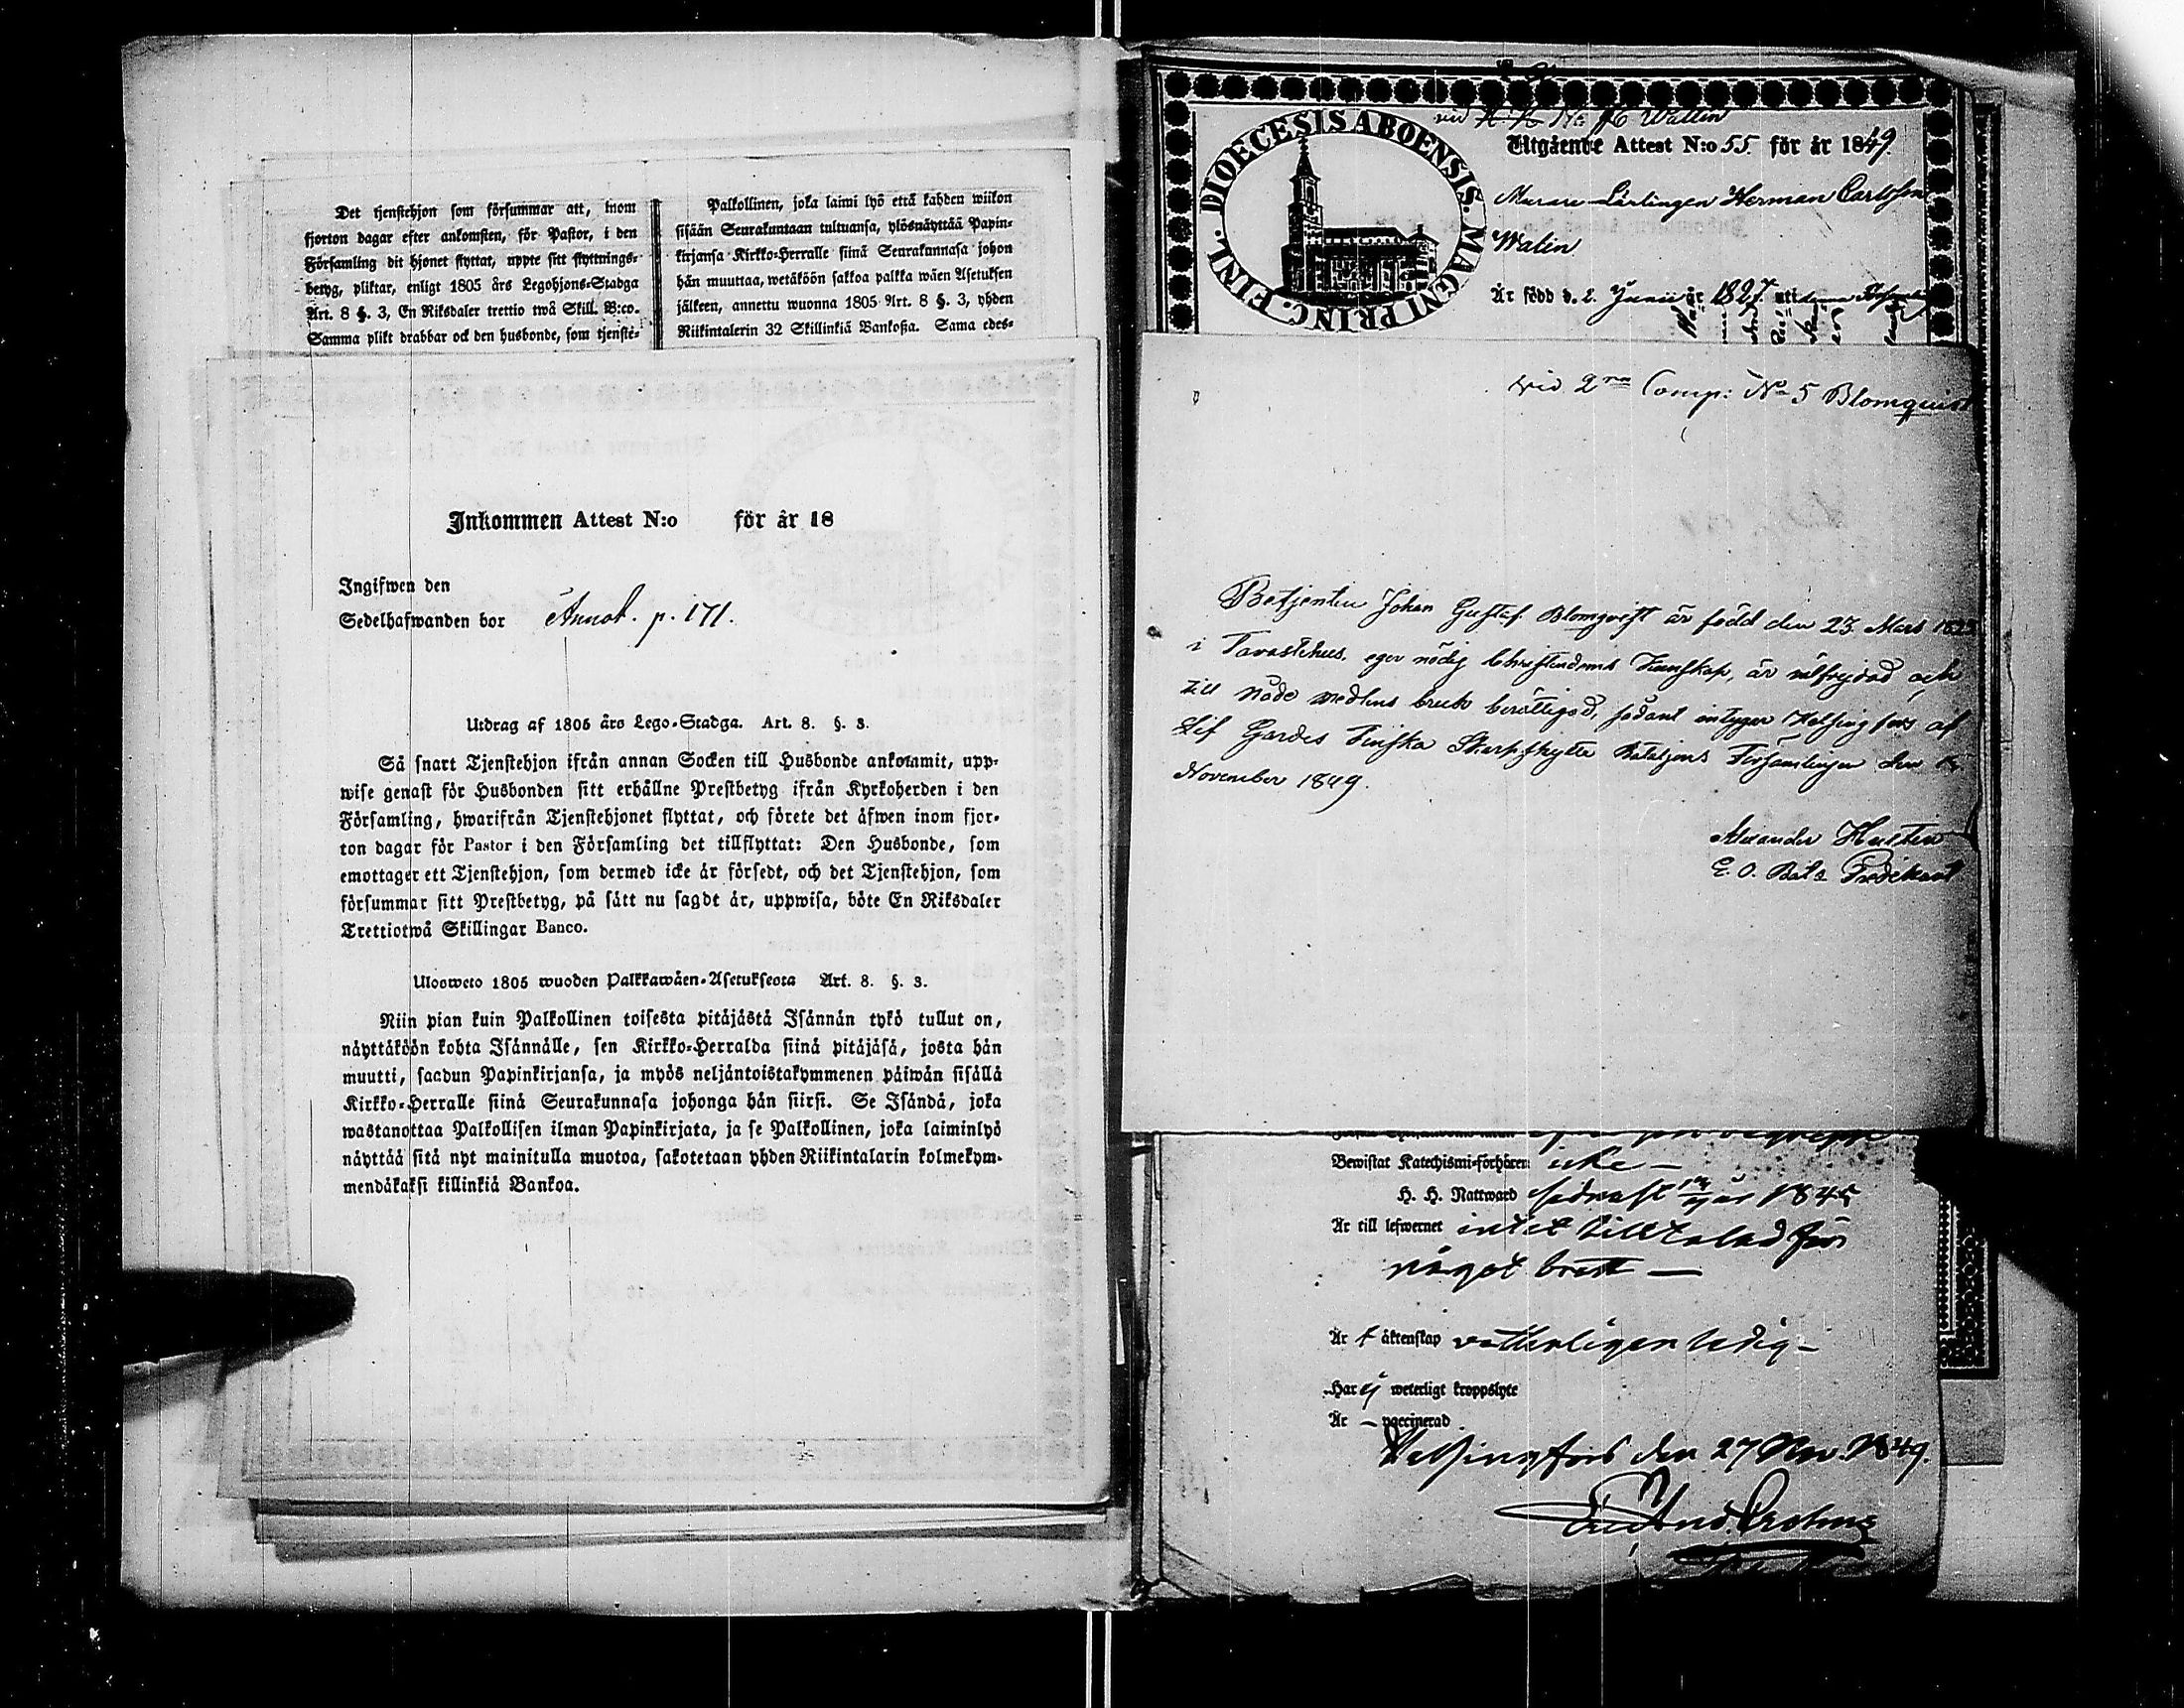 Det tjenstehjon som försummar att, inom
fjorton dagar efter ankomsten, för Pastor, i den
Församling dit hjonet flyttat, uppte sitt flyttnings-
betyg, pliktar, enligt 1805 års Legohjons-Stadga
Art. 8 §. 3, En Riksdaler trettio twå Skill. B:co.
Samma plikt drabbar ock den husbonde, som tjenste-
Palkollinen, joka laimi lyö että kahden wiikon
sisään Seurakuntaan tultuansa, ylösnäyttää Papin-
kirjansa Kirkko-Herralle siinä Seurakunnasa johon
hän muuttaa, wetäköön sakkoa palkka wäen Asetuksen
jälkeen, annettu wuonna 1805 Art. 8 §. 3, yhden
Riikintalerin 32 Skillinkiä Bankoßa. Sama edes-
Inkommen Attest N:o för år 18
Ingifwen den
Sedelhafwanden bor Annot. p. 171.
Utdrag af 1805 års Lego-Stadga. Art. 8. §. 3.
Så snart Tjenstehjon ifrån annan Socken till Husbonde ankommit, upp-
wise genast för Husbonden sitt erhållne Prestbetyg ifrån Kyrkoherden i den
Församling, hwarifrån Tjenstehjonet flyttat, och förete det äfwen inom fjor-
ton dagar för Pastor i den Församling det tillflyttat: Den Husbonde, som
emottager ett Tjenstehjon, som dermed icke är försedt, och det Tjenstehjon, som
försummar sitt Prestbetyg, på sätt nu sagdt är, uppwisa, böte En Riksdaler
Trettiotwå Skillingar Banco.
Ulosweto 1805 wuoden Palkkawäen-Asetuksesta Art. 8. §. 3.
Niin pian kuin Palkollinen toisesta pitäjästä Isännän tykö tullut on,
näyttäköön kohta Isännälle, sen Kirkko-Herralda siinä pitäjäsä, josta hän
muutti, saadun Papinkirjansa, ja myös neljäntoistakymmenen päiwän sisällä
Kirkko-Herralle siinä Seurakunnasa johonga hän siirsi. Se Isändä, joka
wastanottaa Palkollisen ilman Papinkirjata, ja se Palkollinen, joka laiminlyö
näyttää sitä nyt mainitulla muotoa, sakotetaan yhden Riikintalarin kolmekym-
mendäkaksi killinkiä Bankoa.
Wallin
DIOECESIS ABOENSIS. MAGNI PRINC. FINL.
Utgående Attest N:o 55 för år 1849.
Murare Lärlingen Herman Carlsson
Walin
Är född d. 2 Junii år 1827 uti
wid 2ra Comp: No 5 Blomquist
Betjenten Johan Gustaf Blomqvist är född den 23 Mars
i Tavastehus, eger nödig Christendoms Kunskap, är välfrejdad och
till Nådemedlens bruk berättigad, sådant intygar Helsingfors af
Lif Gardes Finska Skarpskytte Bataljons Församlingen den
November 1849.
Alexander
E. O. Bats Predikant
Bewistat Katechismi-förhören icke —
H. H. Nattward sednast år 1845
Är till lefwernet intet tilltalad för
något brott —
Är t äktenskap vetterligen ledig —
Har ej weterligt kroppslyte
Är — vaccinerad
Helsingfors den 27 Nov. 1849.